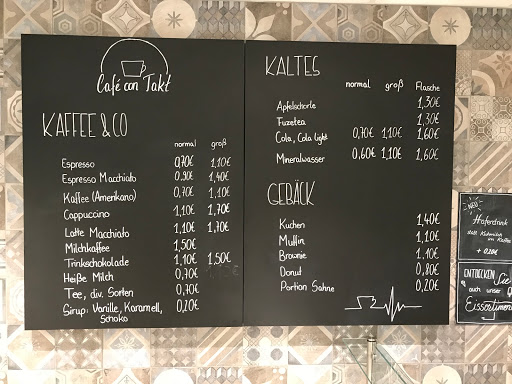 Café con Takt
KAFFEE & CO
normal groß
Espresso 0,70€ 1,10€
Espresso Macchiato 0,90€ 1,40€
Kaffee (Amerikano) 0,70€ 1,10€
Cappuccino 1,10€ 1,70€
Latte Macchiato 1,10€ 1,70€
Milchkaffee 1,50€
Trinkschokolade 1,10€ 1,50€
Heiße Milch 0,70€
Tee, div. Sorten 0,70€
Sirup: Vanille, Karamell, 0,20€
Schoko
KALTES
normal groß Flasche
Apfelschorle 1,30€
Fuzetea 1,30€
Cola, Cola light 0,70€ 1,10€ 1,60€
Mineralwasser 0,60€ 1,10€ 1,60€
GEBÄCK
Kuchen 1,40€
Muffin 1,10€
Brownie 1,10€
Donut 0,80€
Portion Sahne 0,20€
NEU
Haferdrink
statt Kuhmilch
im Kaffee
+ 0,20€
ENTDECKEN Sie
auch unser
Eissortiment